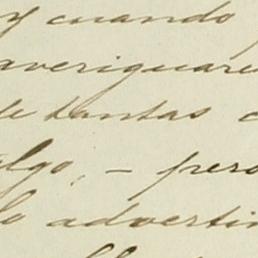 y cuando
averiguare
de tantas c
algo, – pero
lo advertin